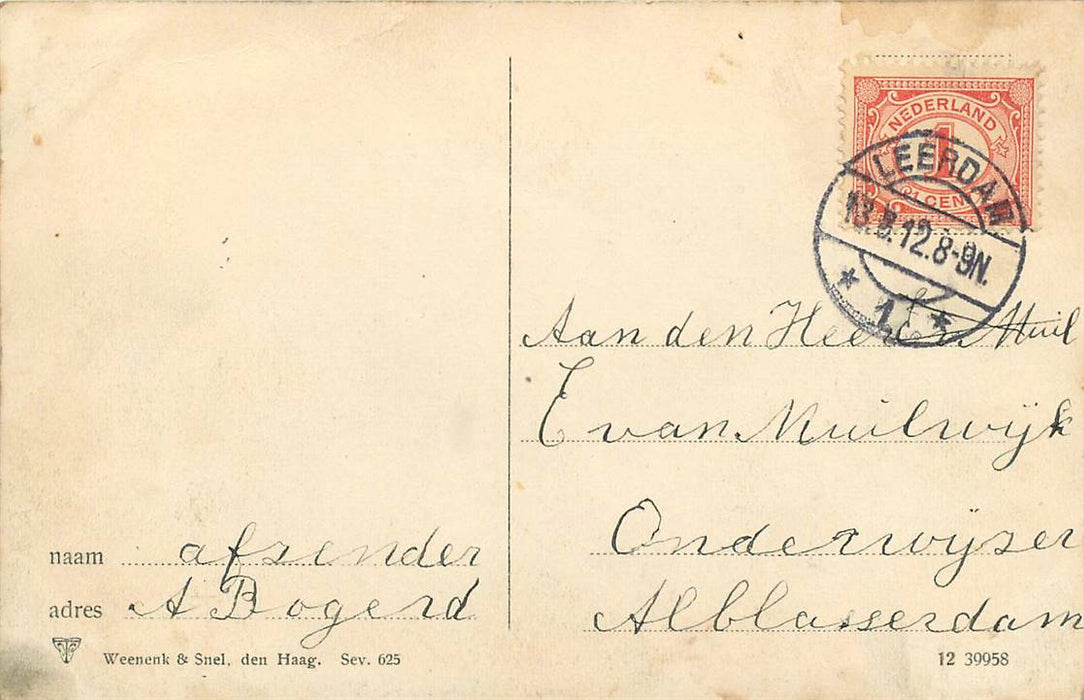 NEDERLAND
1
CENT
LEERDAM
12.8-9N.
1
Aan den Heer
E van Muilwijk
Onderwijzer
Alblasserdam
naam afzender
adres A Bogerd
Weenenk & Snel, den Haag. Sev. 625
12 39958